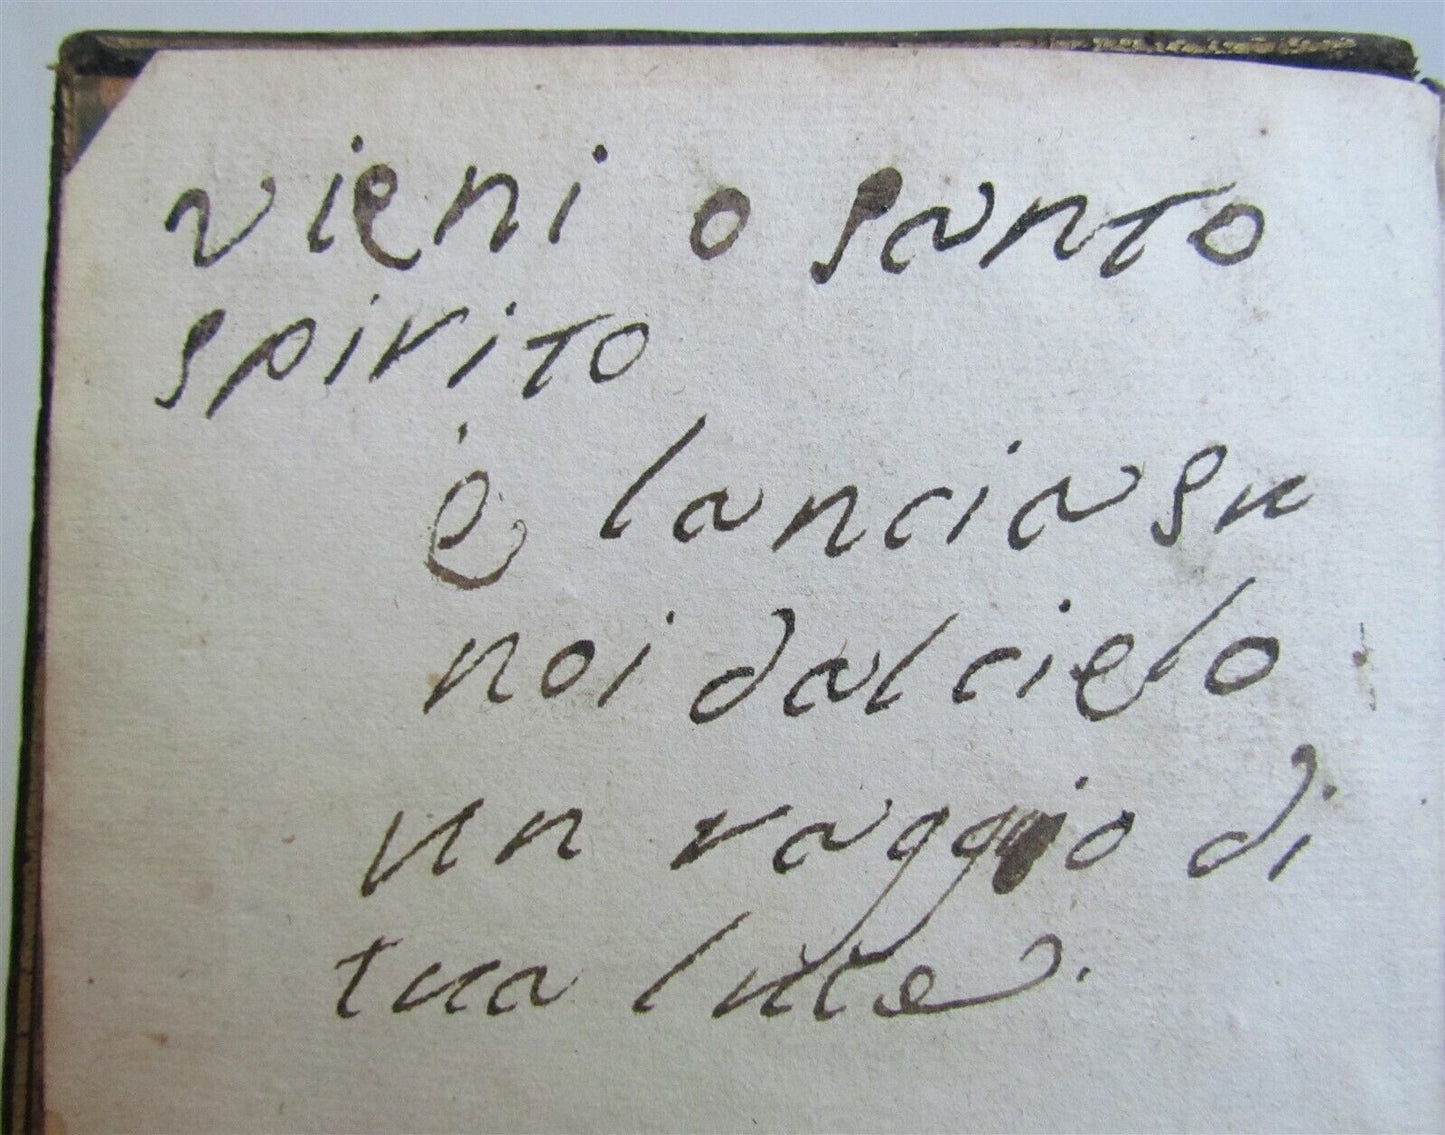 vieni o santo
spirito
e lancia su
noi dal cielo
un raggio di
tua luce.